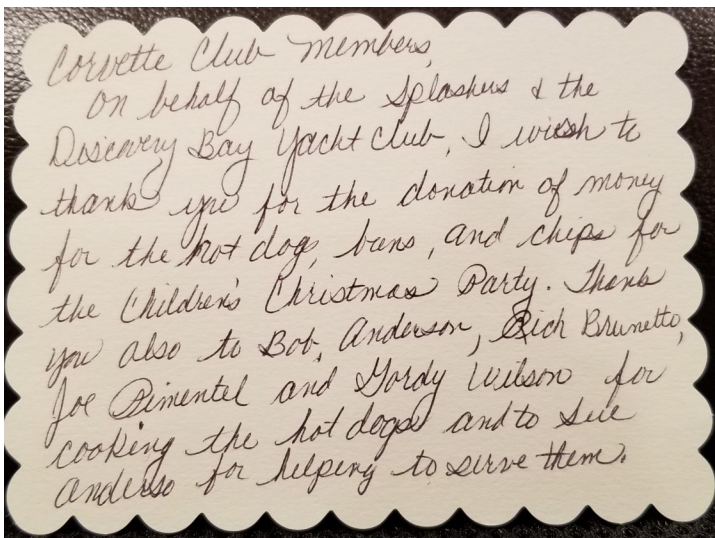 Corvette Club members,
On behalf of the Splashers & the
Discovery Bay Yacht Club, I wish to
thank you for the donation of money
for the hot dog, buns, and chips for
the Children's Christmas Party. Thank
you also to Bob, Anderson, Rich Brunetto,
Joe Pimentel and Gordy Wilson for
cooking the hot dogs and to Sue
Anderso for helping to serve them.